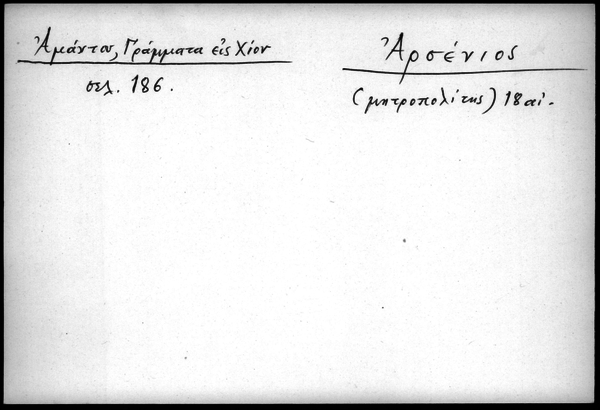 Ἀμάντου, Γράμματα εἰς Χίον
σελ. 186.
Ἀρσένιος
(μητροπολίτης) 18 αἰ.